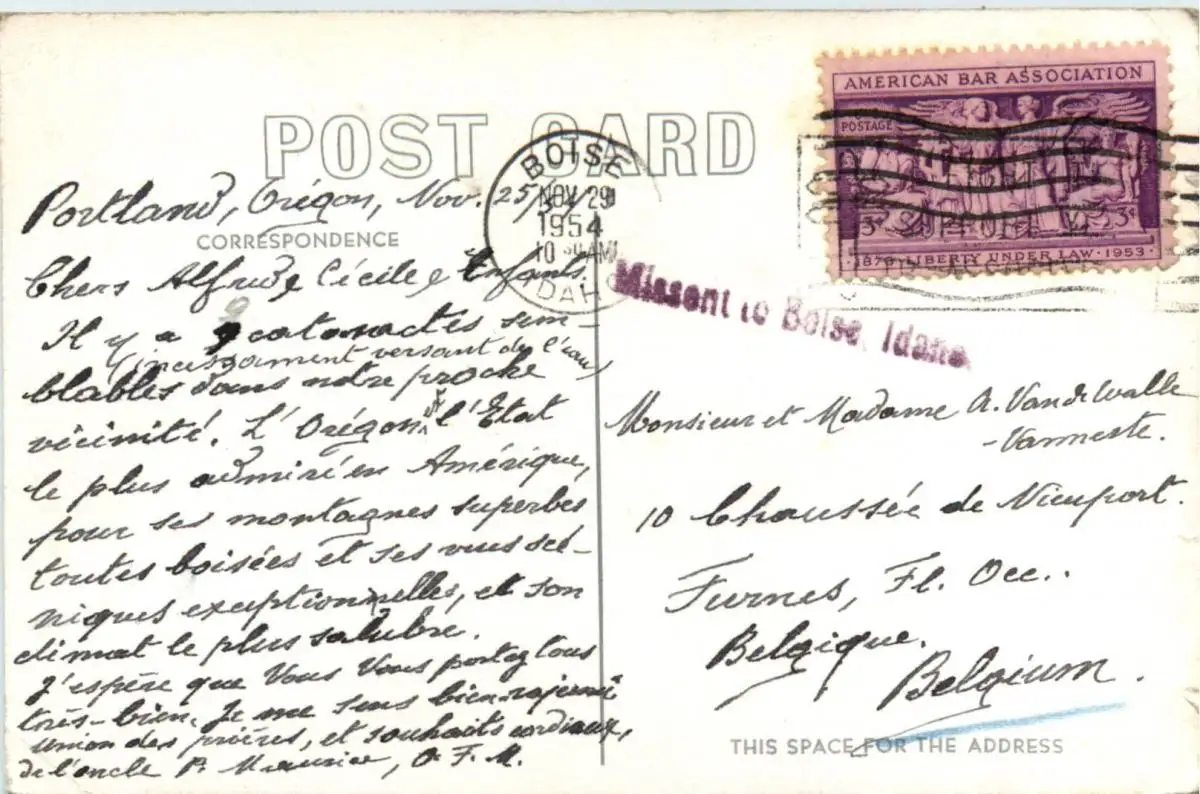 POST CARD
Portland, Orégon, Nov. 25/54
CORRESPONDENCE
Chers Alfred, Cécile, Enfants.
Il y a 9 cataractes sem-
(incessamment versant de l'eau)
blables dans notre proche
vicinité. L'Orégon est l'Etat
le plus admiré en Amérique,
pour ses montagnes superbes
toutes boisées et ses vues scé-
niques exceptionnelles, et son
climat le plus salubre.
J'espère que Vous Vous portez tous
très-bien. Je me sens bien rajeuni
union des prières, et souhaits cordiaux,
de l'oncle P. Maurice, O.F.M.
BOISE
NOV 29
1954
10 30 AM
IDAHO
Missent to Boise, Idaho
AMERICAN BAR ASSOCIATION
POSTAGE
3¢ 3¢
1878 · LIBERTY UNDER LAW · 1953
Monsieur et Madame A. VandeWalle
-Vanneste.
10 Chaussée de Nieuport.
Furnes, Fl. Occ..
Belgique.
Belgium.
THIS SPACE FOR THE ADDRESS